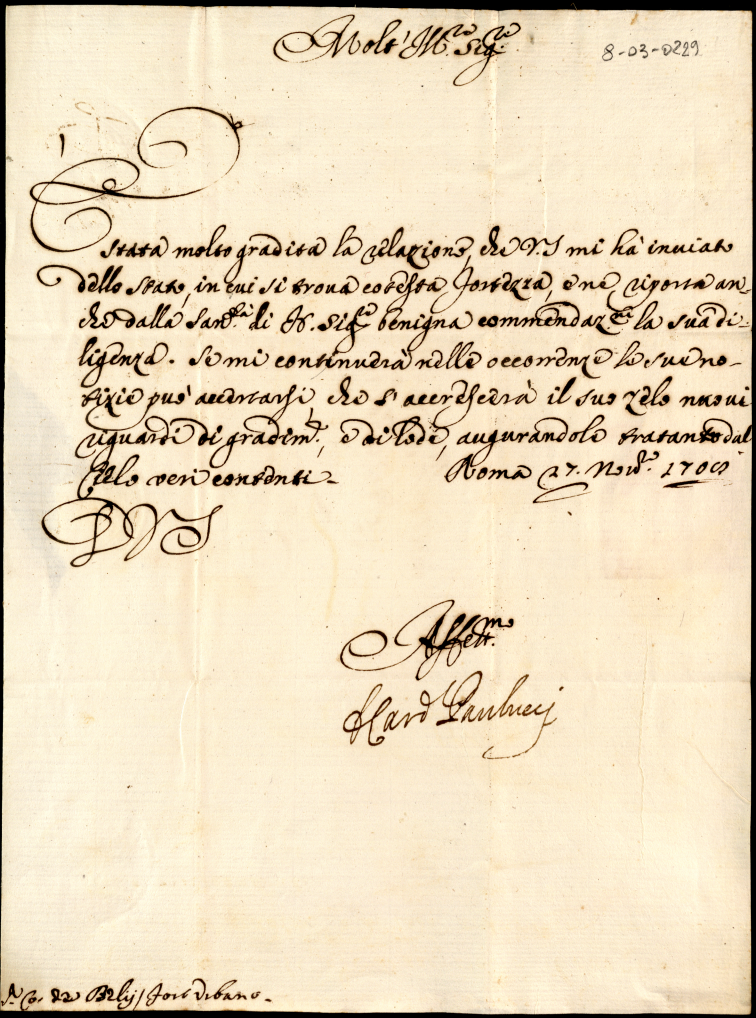 Molt' Ill.re Sig.re
8-03-0229
È stata molto gradita la relazione, che V.S. mi hà inviato
dello stato, in cui si trova cotesta Fortezza, e ne riporta an-
che dalla San.tà di N. Sig.re benigna commendaz.ne la sua di-
ligenza. Se mi continuerà nelle occorrenze le sue no-
tizie può accertarsi, che s'accrescerà il suo zelo nuovi
riguardi di gradim.to, e di lode, augurandole tratanto dal
Cielo veri contenti. Roma 27. Nov.re 1708
D V S
Affett.mo
Il Card Paulucci
Forte Urbano.